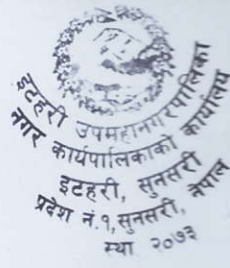 इटहरी उपमहानगरपालिका
नगर कार्यपालिकाको कार्यालय
इटहरी, सुनसरी
प्रदेश नं.१, सुनसरी, नेपाल
स्था २०७३